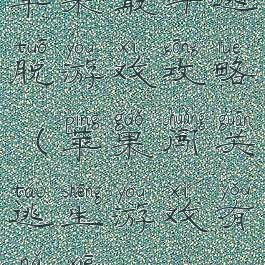 苹果最牛逃
tuō yóu xì gōng lüè
脱游戏攻略
píng guǒ chuǎng guān
（苹果闯关
táo shēng yóu xì yǒu
逃生游戏有
nǎ xiē